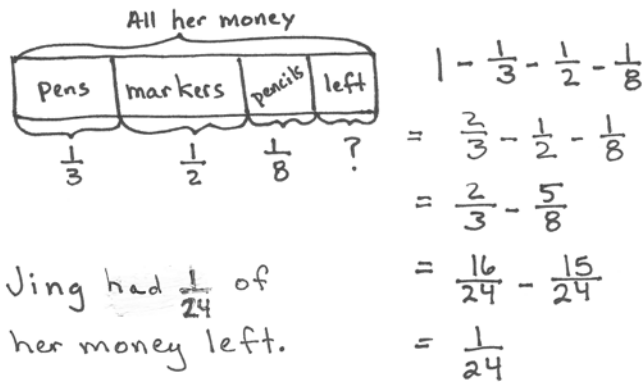 All her money
pens markers pencils left
1/3 1/2 1/8 ?
Jing had 1/24 of
her money left.
1 - 1/3 - 1/2 - 1/8
= 2/3 - 1/2 - 1/8
= 2/3 - 5/8
= 16/24 - 15/24
= 1/24